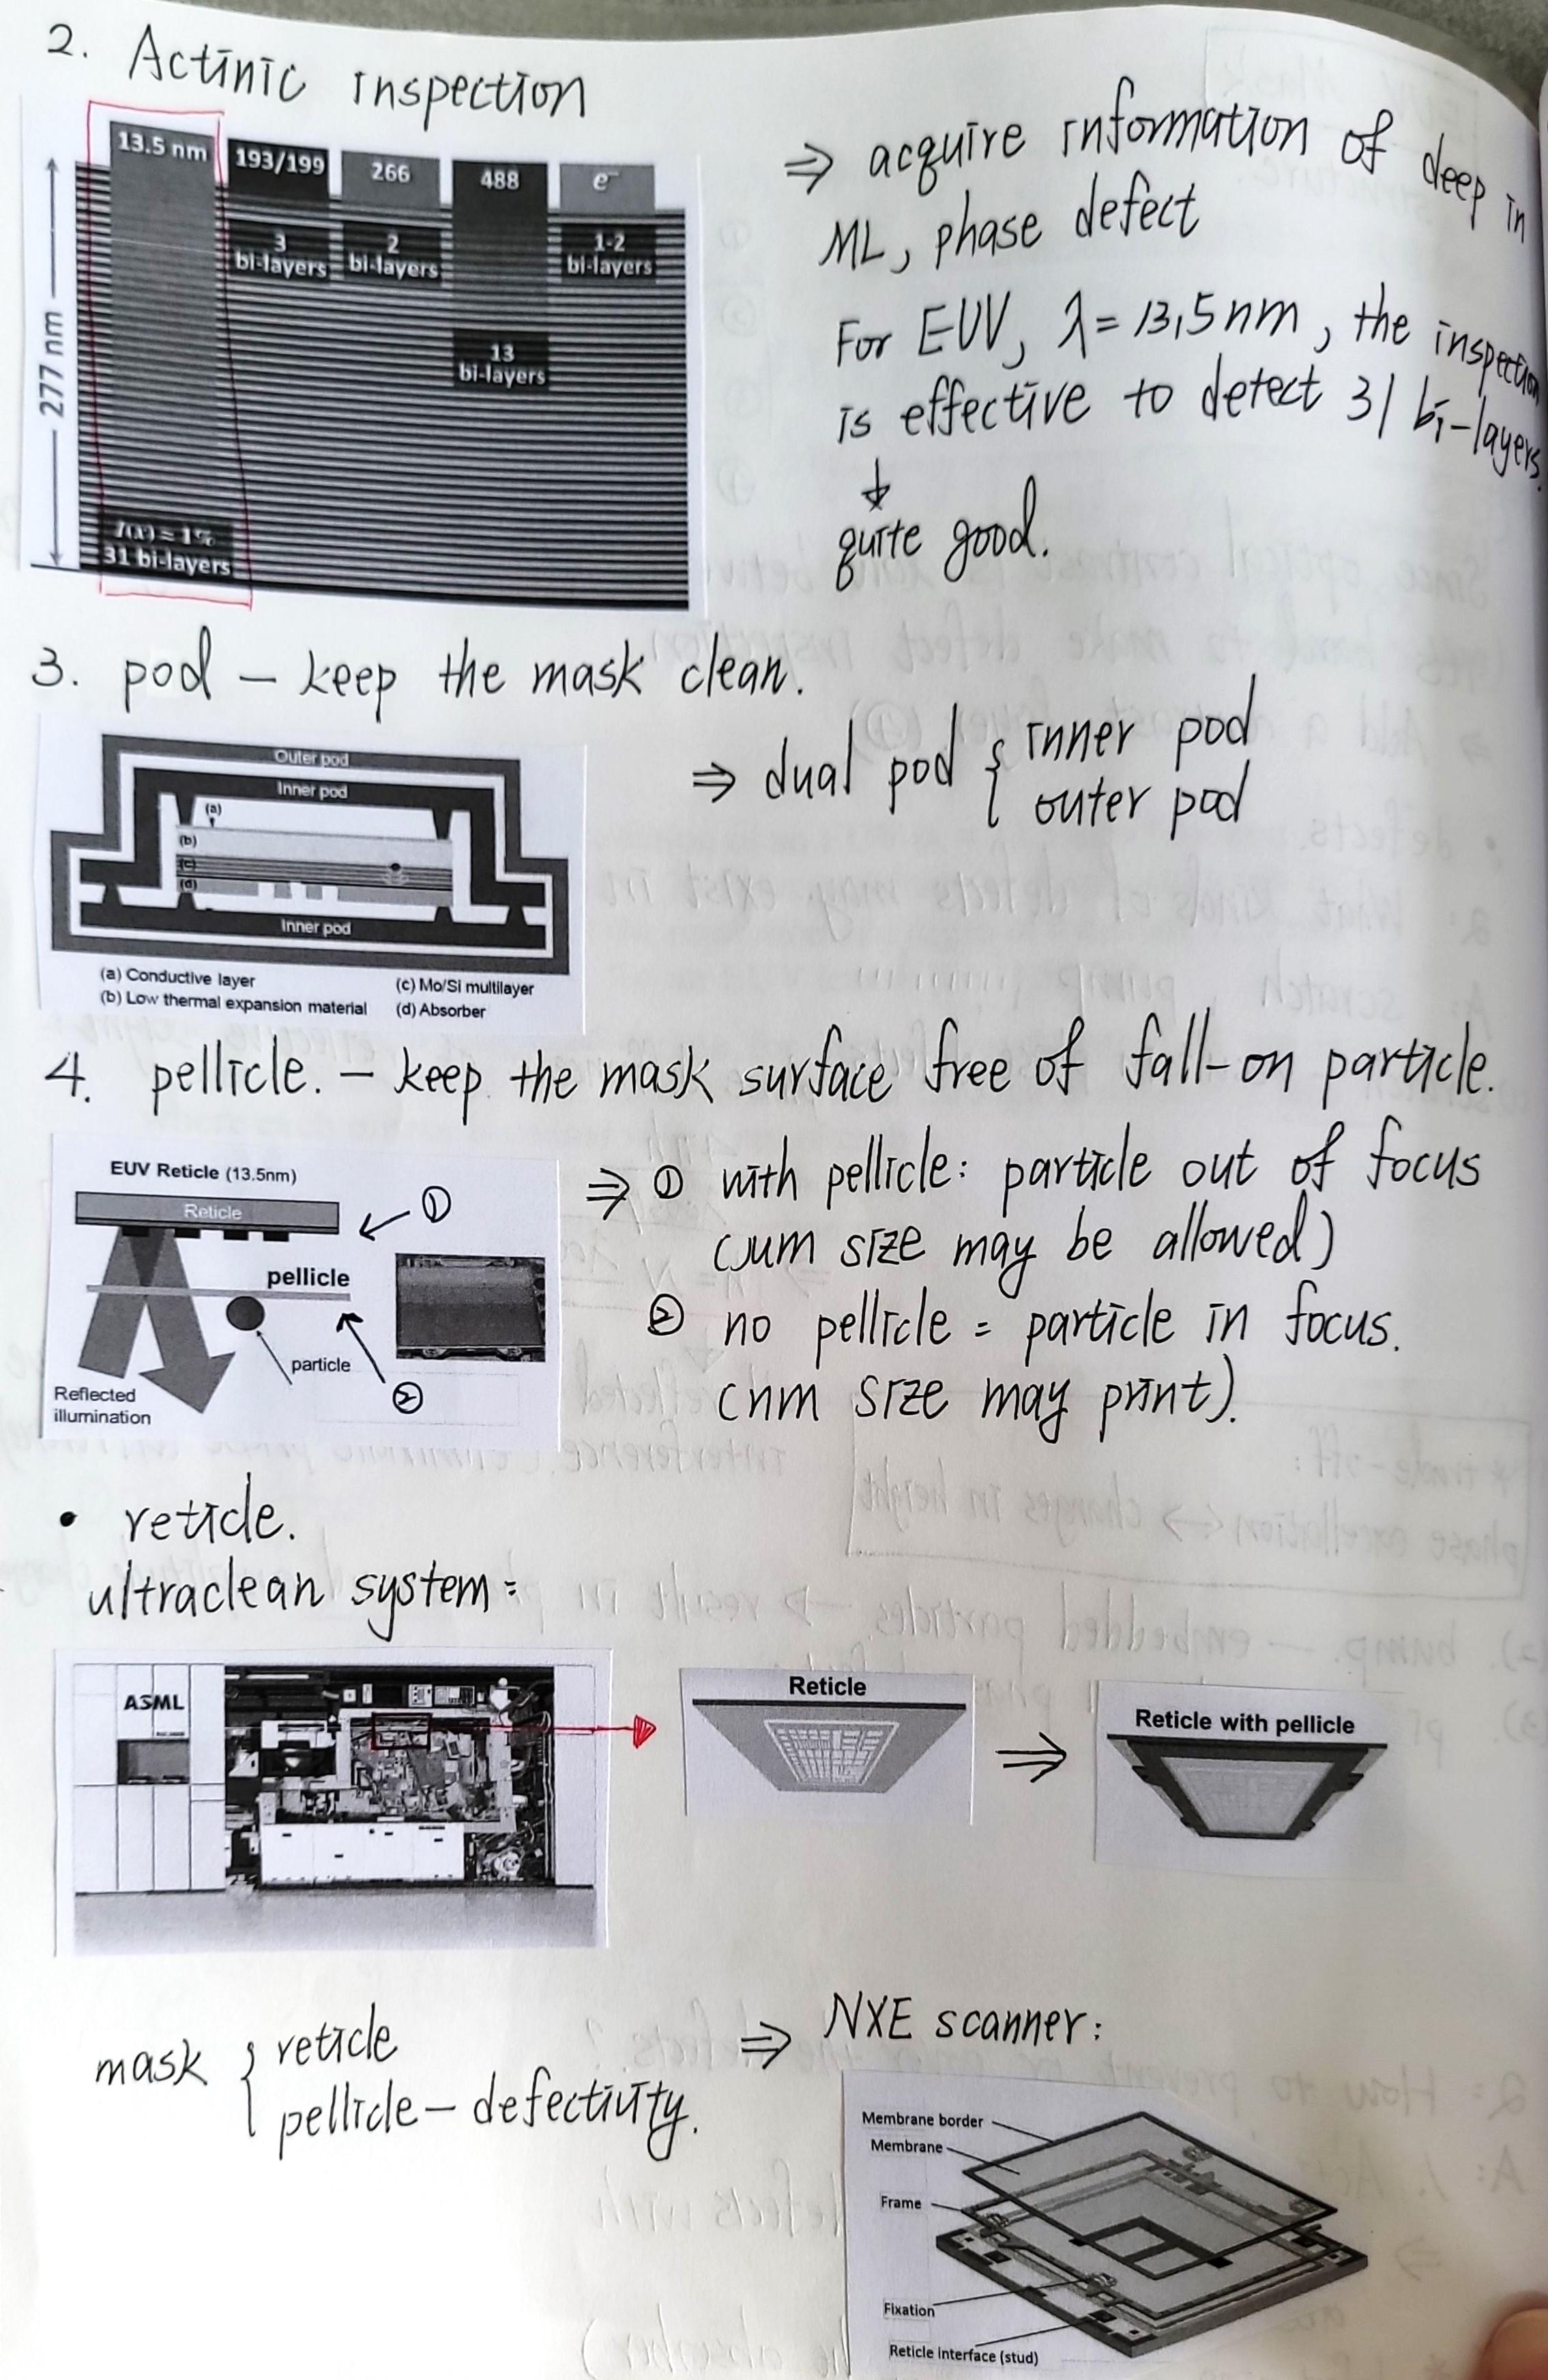 2. Actinic inspection
13.5 nm
193/199
266
488
e⁻
3
bi-layers
2
bi-layers
1-2
bi-layers
13
bi-layers
277 nm
I(x) = 1%
31 bi-layers
⇒ acquire information of deep in
ML, phase defect
For EUV, λ = 13,5 nm, the inspection
is effective to detect 31 bi-layers.
↓
quite good.
3. pod – keep the mask clean.
Outer pod
Inner pod
(a)
(b)
(c)
(d)
Inner pod
(a) Conductive layer
(c) Mo/Si multilayer
(b) Low thermal expansion material
(d) Absorber
⇒ dual pod { inner pod
outer pod
4. pellicle. – keep the mask surface free of fall-on particle.
EUV Reticle (13.5nm)
Reticle
①
pellicle
particle
②
Reflected
illumination
⇒ ① with pellicle: particle out of focus
(um size may be allowed)
② no pellicle = particle in focus.
(nm size may print).
• reticle.
ultraclean system:
ASML
Reticle
⇒
Reticle with pellicle
mask { reticle
pellicle – defectivity.
⇒ NXE scanner:
Membrane border
Membrane
Frame
Fixation
Reticle interface (stud)